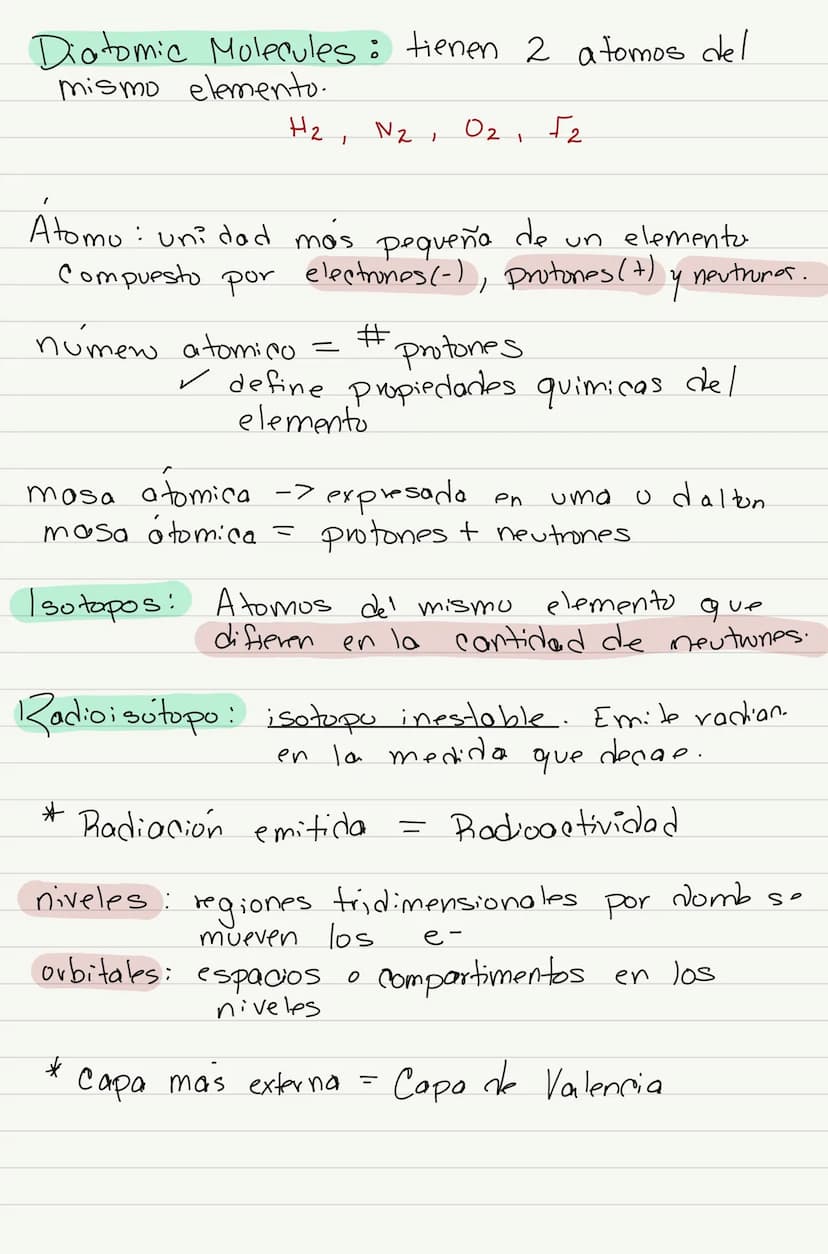 Diatomic Molecules: tienen 2 atomos del
mismo elemento.
H2, N2, O2, I2
Átomo: unidad más pequeña de un elemento
Compuesto por electrones(-), protones(+) y neutrones.
número atomico = # protones
✓ define propiedades quimicas del
elemento
masa atómica -> expresada en uma o dalton
masa átomica = protones + neutrones
Isotopos: Atomos del mismo elemento que
difieren en la cantidad de neutrones.
Radioisótopo: isotopo inestable. Emite radian.
en la medida que decae.
* Radiación emitida = Radioactividad
niveles: regiones tridimensionales por donde se
mueven los e-
orbitales: espacios o compartimentos en los
niveles
* Capa más externa = Capa de Valencia